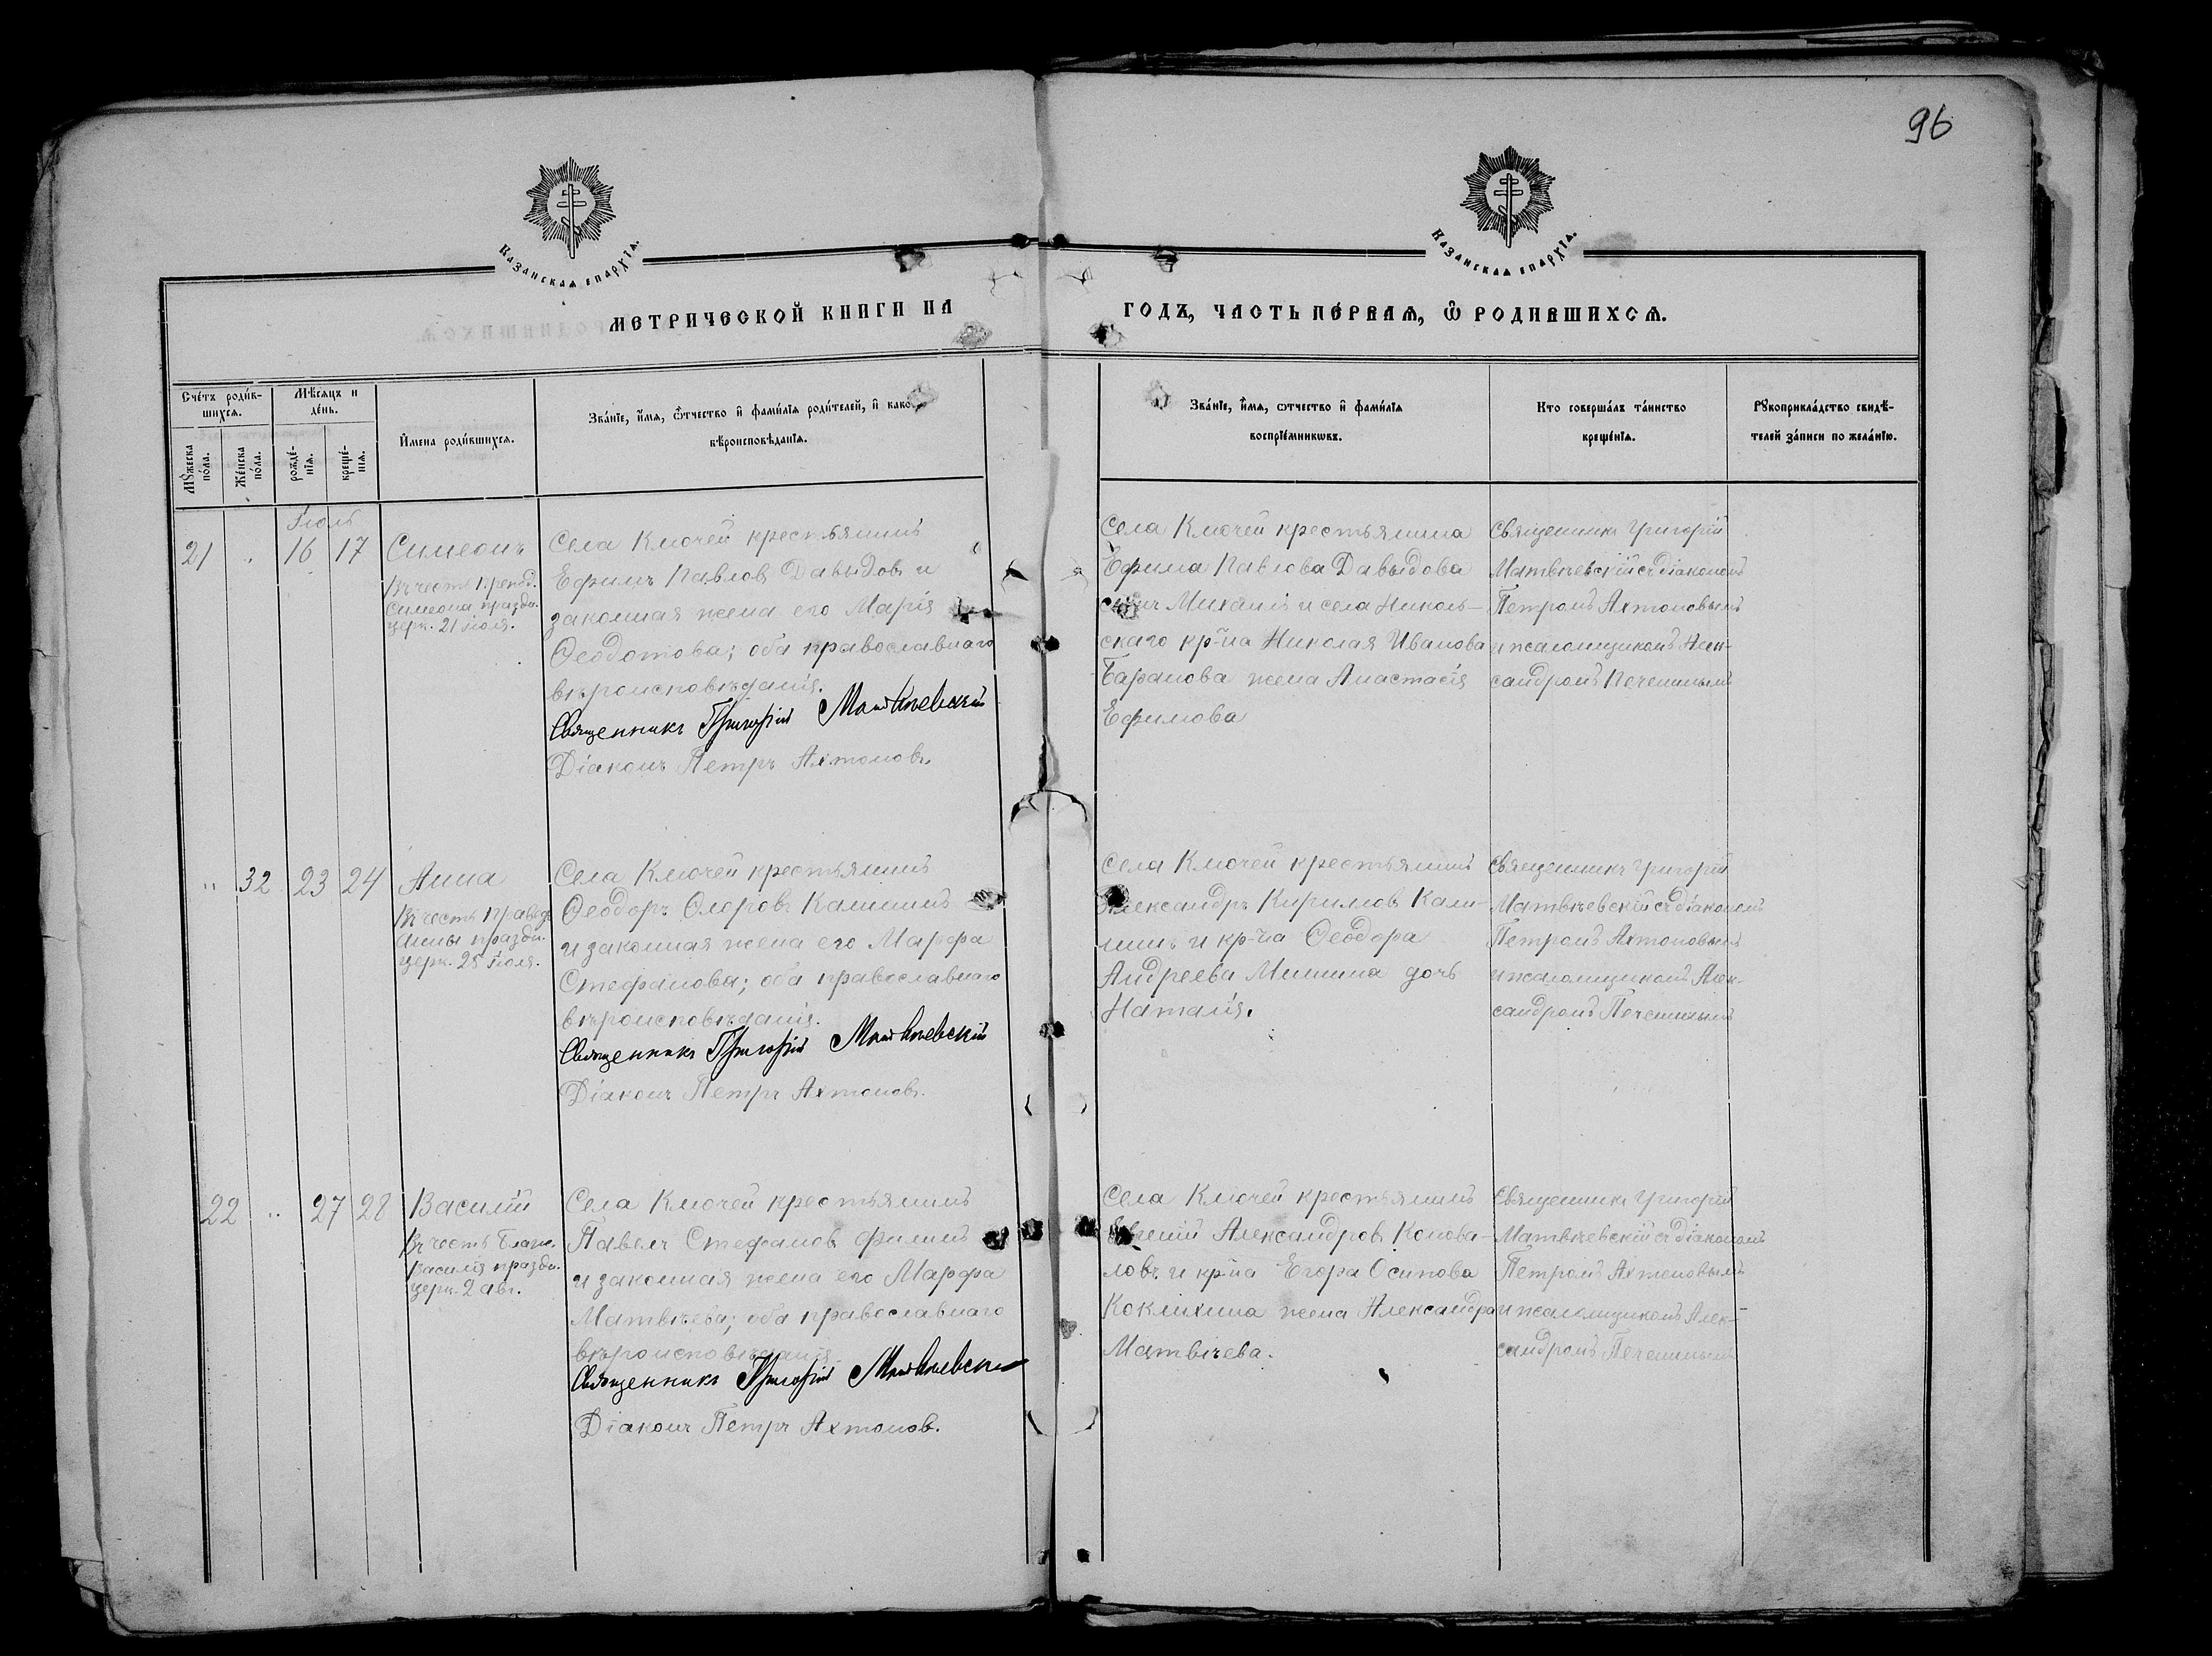 96
Казанская епархїа.
Казанская епархїа.
МЕТРИЧЕСКОЙ КНИГИ НА
ГОДЪ, ЧАСТЬ ПЕ́РВАѦ, Ѿ РОДИВШИХСѦ.
Сче́тъ роди́в-
шихсѧ.
Мѣ́сѧцъ и
де́нь.
Мꙋ́жеска
по́ла.
Же́нска
по́ла.
рожде́-
нїѧ.
креще́-
нїѧ.
И҆мена роди́вшихсѧ.
Зва́нїе, и҆́мѧ, ѻ҆́тчество и҆ фами́лїѧ роди́телей, и҆ како
вѣроисповѣ́данїѧ.
Зва́нїе, и҆́мѧ, ѻтчество и҆ фами́лїѧ
воспрїе́мникѡвъ.
Кто соверша́лъ та́инство
креще́нїѧ.
Рꙋкоприкла́дство свидѣ́-
телей за́писи по жела́нїю.
Іюль
21
16
17
Симеонъ
Въ честь препод.
Симеона праздн.
церк. 21 іюля.
Села Ключей крестьянинъ
Ефимъ Павловъ Давыдовъ и
законная жена его Марія
Ѳеодотова; оба православнаго
вѣроисповѣданія.
Священникъ Григорій Матвѣевскій
Діаконъ Петръ Ахтоновъ.
Села Ключей крестьянина
Ефима Павлова Давыдова
сынъ Михаилъ и села Николь-
скаго кр-на Николая Иванова
Баранова жена Анастасія
Ефимова
Священникъ Григорій
Матвѣевскій съ діакономъ
Петромъ Ахтоновымъ
и псаломщикомъ Алек-
сандромъ Печенинымъ
32
23
24
Анна
Въ честь правед.
Анны праздн.
церк. 25 іюля.
Села Ключей крестьянинъ
Ѳеодоръ Калининъ
и законная жена его Марфа
Стефанова; оба православнаго
вѣроисповѣданія.
Священникъ Григорій Матвѣевскій
Діаконъ Петръ Ахтоновъ.
Села Ключей крестьянинъ
Александръ Кириловъ Кали-
нинъ и кр-на Ѳеодора
Андреева Минина дочь
Наталія.
Священникъ Григорій
Матвѣевскій съ діакономъ
Петромъ Ахтоновымъ
и псаломщикомъ Алек-
сандромъ Печенинымъ
22
27
28
Василій
Въ честь Блаж.
Василія праздн.
церк. 2 авг.
Села Ключей крестьянинъ
Павелъ Стефановъ Филинъ
и законная жена его Марфа
Матвѣева; оба православнаго
вѣроисповѣданія.
Священникъ Григорій Матвѣевскій
Діаконъ Петръ Ахтоновъ.
Села Ключей крестьянинъ
Евгеній Александровъ Конова-
ловъ и кр-на Егора Осипова
Коклихина жена Александра
Матвѣева.
Священникъ Григорій
Матвѣевскій съ діакономъ
Петромъ Ахтоновымъ
и псаломщикомъ Алек-
сандромъ Печенинымъ